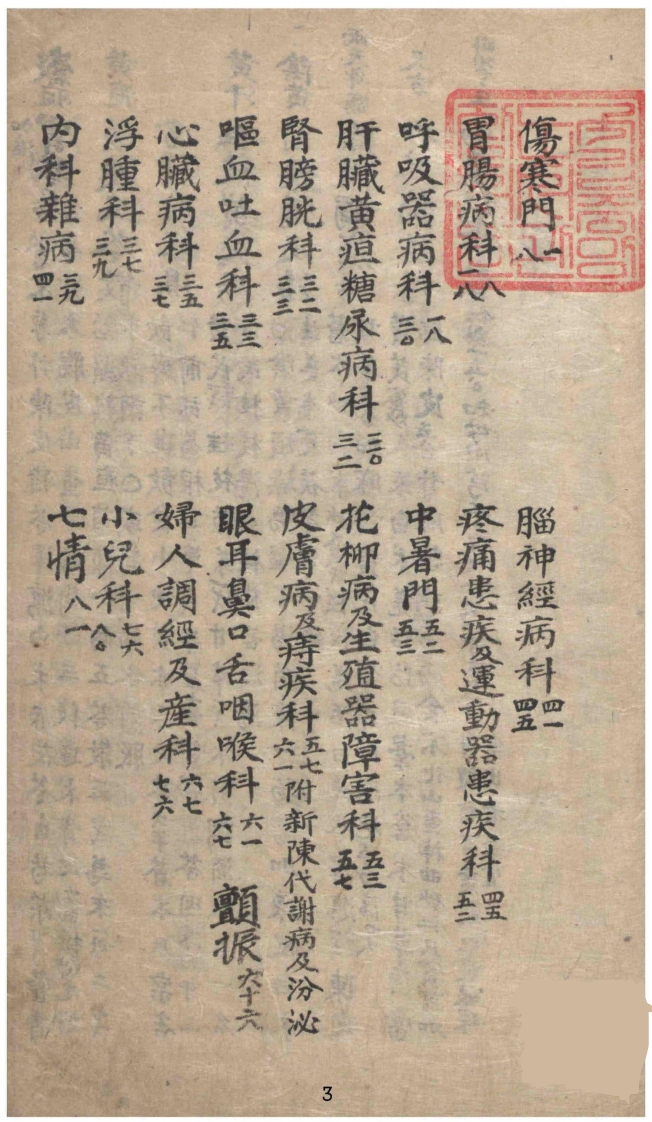 傷寒門 一 八
胃腸病科 八 一八
呼吸器病科 一八 三〇
肝臟黄疸糖尿病科 三〇 三二
腎膀胱科 三二 三三
嘔血吐血科 三三 三五
心臟病科 三五 三七
浮腫科 三七 三九
内科雜病 三九 四一
腦神經病科 四一 四五
疼痛患疾及運動器患疾科 四五 五二
中暑門 五二 五三
花柳病及生殖器障害科 五三 五七
皮膚病及痔疾科 五七 六一 附新陳代謝病及汾泌
眼耳鼻口舌咽喉科 六一 六七 顫振 六十六
婦人調經及産科 六七 七六
小兒科 七六 八〇
七情 八一
3